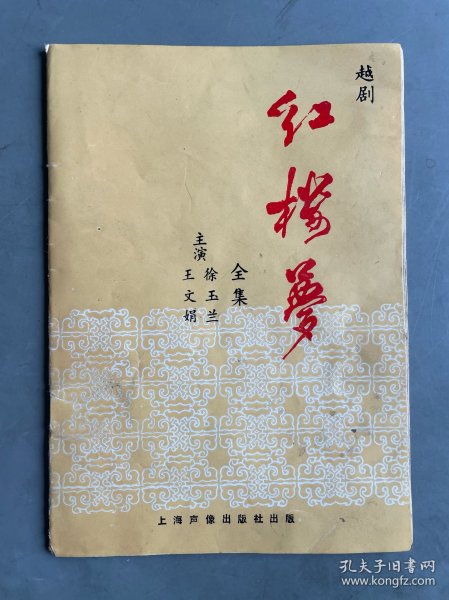 越剧
红楼梦
全集
主演
徐玉兰
王文娟
上海声像出版社出版
孔夫子旧书网
www.kongfz.com